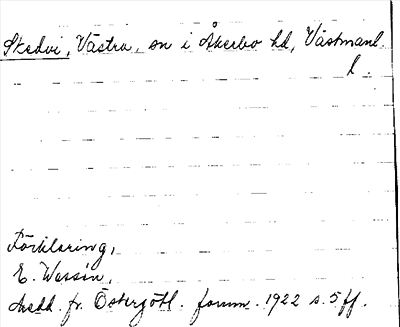 Skedvi, Västra, sn i Åkerbo hd, Västmanl.
l.
Förklaring,
E. Wessén,
Medd. fr. Östergötl. fornm. 1922 s. 5 ff.